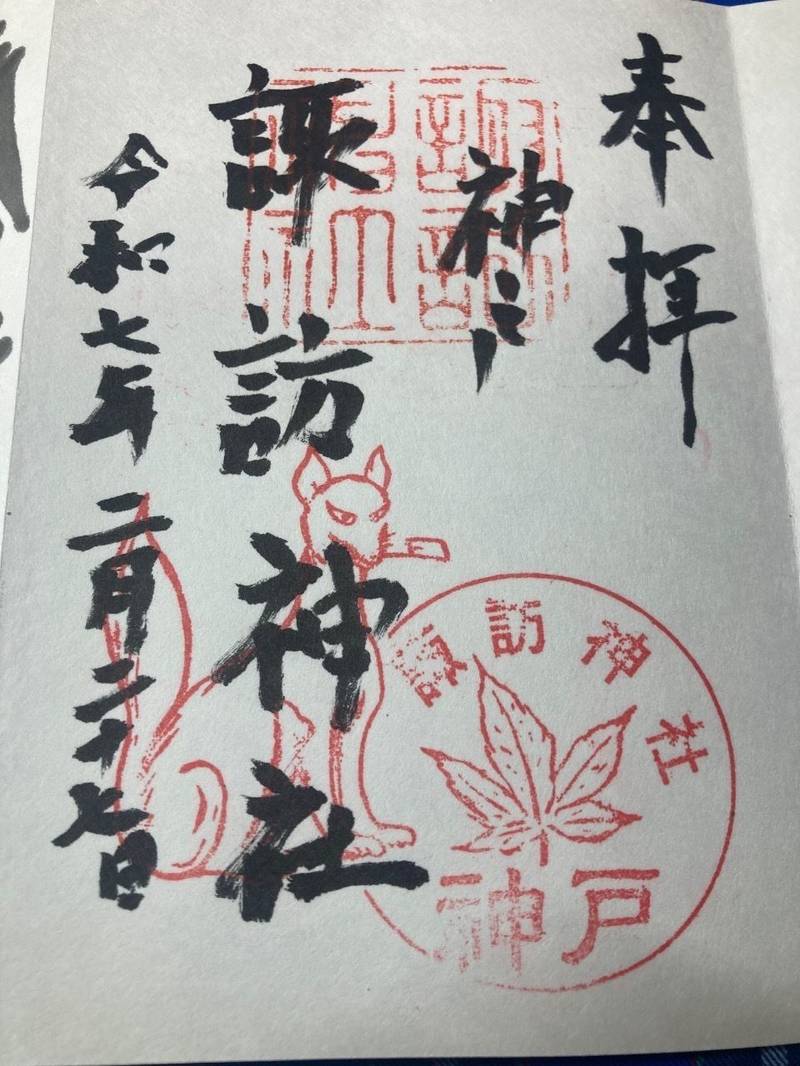 奉拝
神戸
諏訪神社
令和七年二月二十七日
諏訪神社
神戸